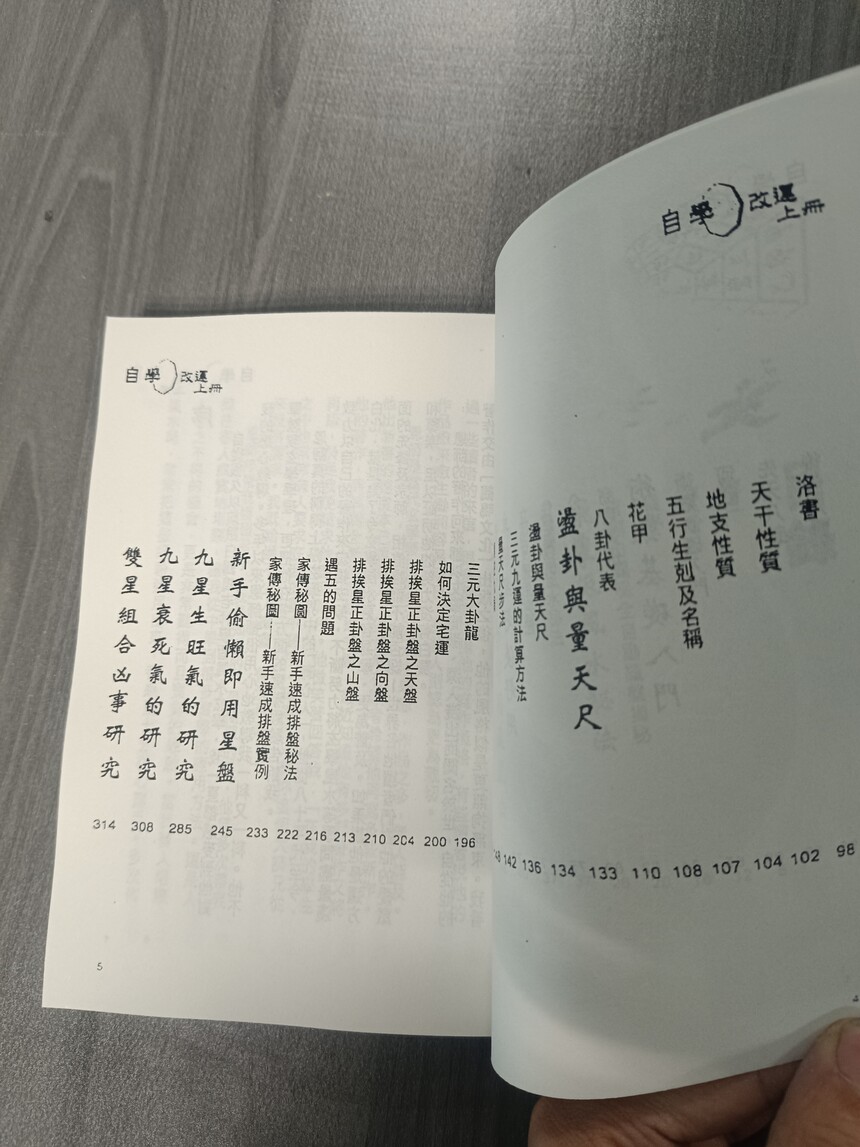 自學 改運
上冊
洛書 98
天干性質 102
地支性質 104
五行生剋及名稱 107
花甲 108
八卦代表 110
盪卦與量天尺 133
盪卦與量天尺 134
三元九運的計算方法 136
量天尺步法 142
4
自學 改運
上冊
三元大卦龍 196
如何決定宅運 200
排挨星正卦盤之天盤 204
排挨星正卦盤之向盤 210
排挨星正卦盤之山盤 213
遇五的問題 216
家傳秘圖——新手速成排盤秘法 222
家傳秘圖……新手速成排盤實例 233
新手偷懶即用星盤 245
九星生旺氣的研究 285
九星衰死氣的研究 308
雙星組合凶事研究 314
5